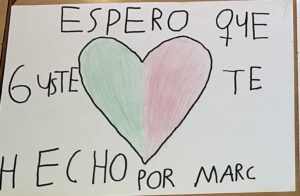 ESPERO QUE
GUSTE TE
HECHO POR MARC